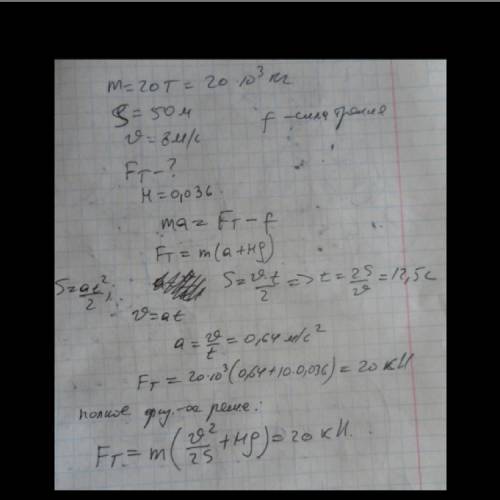 m = 20 т = 20·10³ кг
S = 50 м
f - сила трения
v = 8 м/с
Fт - ?
μ = 0,036
ma = Fт - f
Fт = m(a + μg)
S = at²/2; S = vt/2 => t = 2S/v = 12,5 c
v = at
a = v/t = 0,64 м/с²
Fт = 20·10³(0,64 + 10·0,036) = 20 кН
полное
Fт = m(v²/2S + μg) = 20 кН.